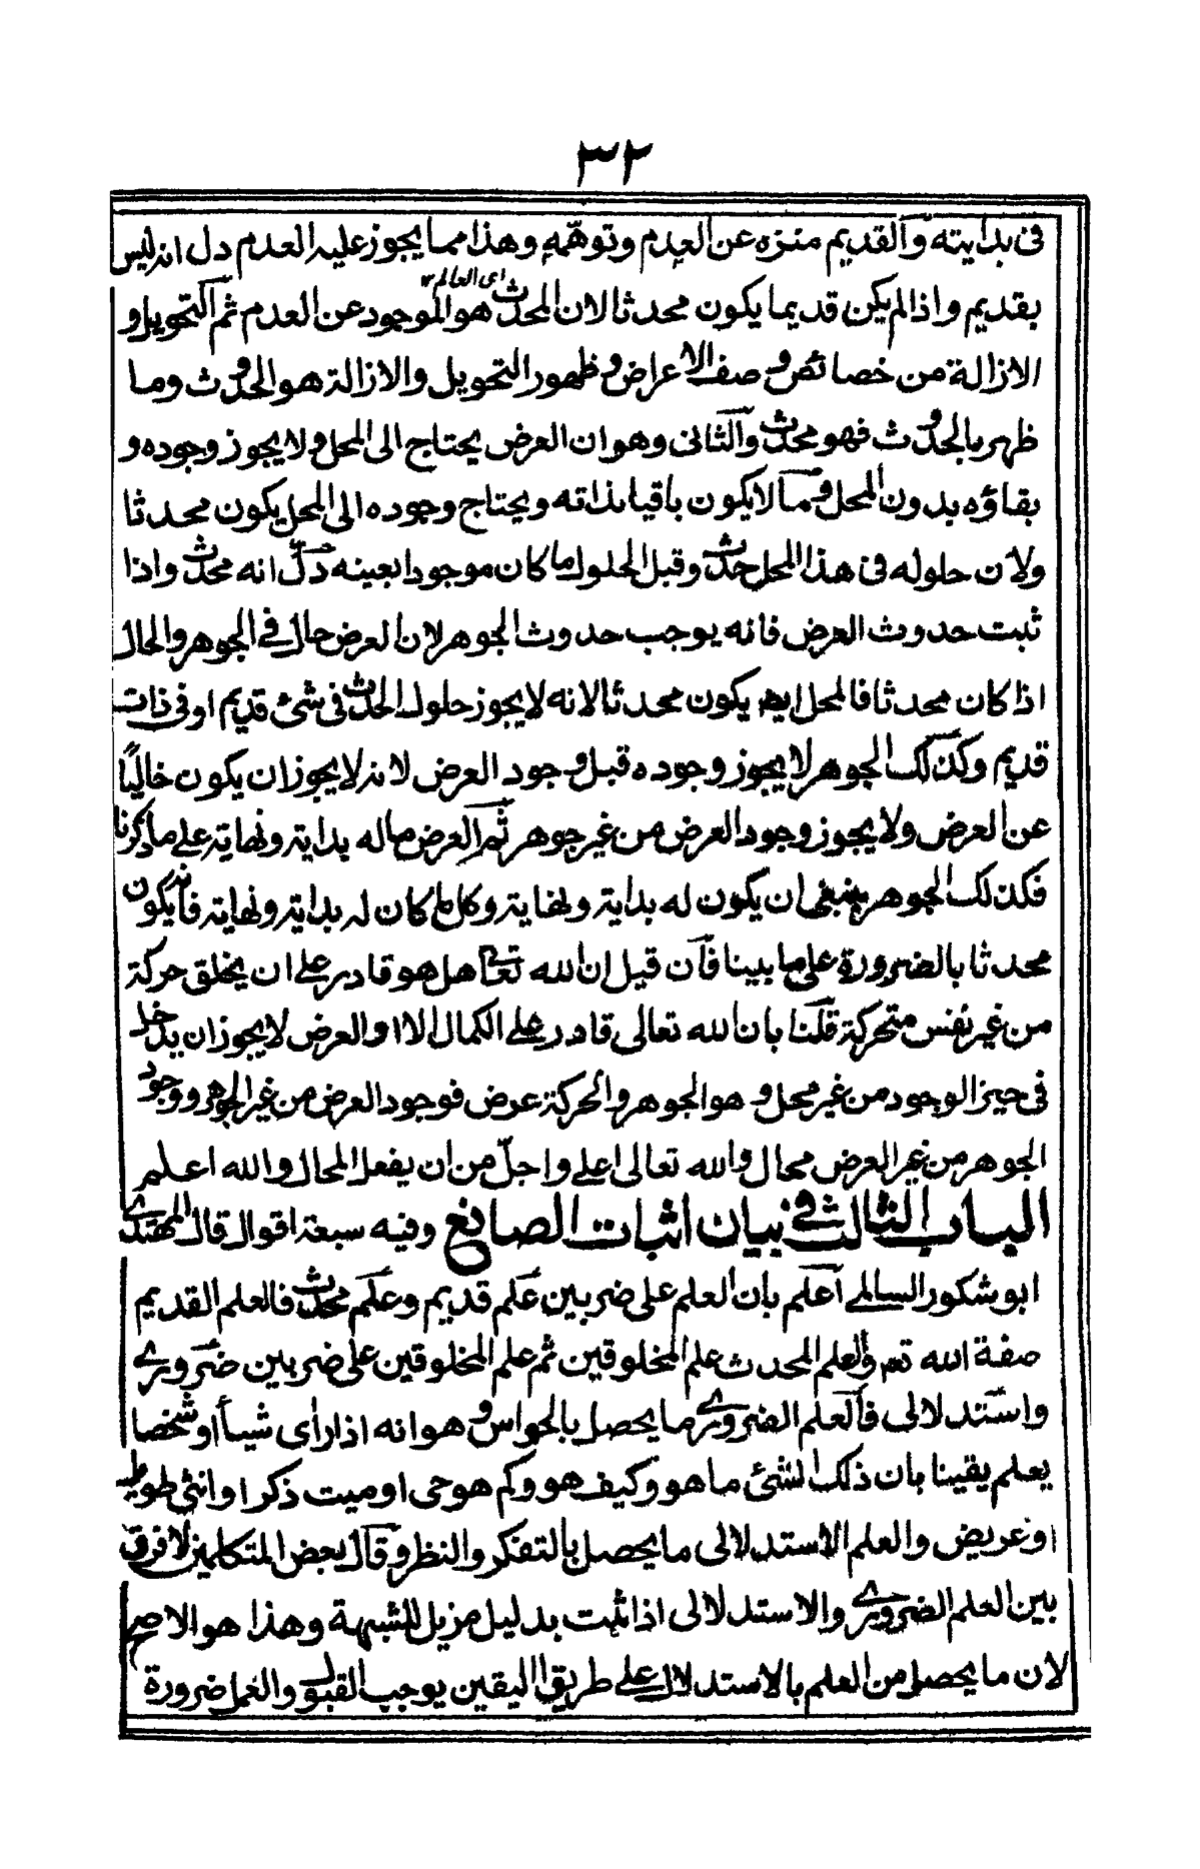 ٣٢
فى بدايته والقديم منزه عن العدم وتوهمه وهذا مما يجوز عليه العدم دل انه ليس
اى العالم ١٢
بقديم واذا لم يكن قديما يكون محدثا لان المحدث هو الموجود عن العدم ثم التحويل و
الازالة من خصائص وصف الاعراض وظهور التحويل والازالة هو الحدوث وما
ظهر بالحدوث فهو محدث والثانى وهو ان العرض يحتاج الى المحل ولا يجوز وجوده و
بقاؤه بدون المحل وما لا يكون باقيا بذاته ويحتاج وجوده الى المحل يكون محدثا
ولان حلوله فى هذا المحل حدث وقبل الحلول ما كان موجودا بعينه دل انه محدث واذا
ثبت حدوث العرض فانه يوجب حدوث الجوهر لان العرض حال فى الجوهر والحال
اذا كان محدثا فالمحل ايضا يكون محدثا لانه لا يجوز حلول الحدث فى شئ قديم او فى ذات
قديم وكذلك الجوهر لا يجوز وجوده قبل وجود العرض لانه لا يجوز ان يكون خاليًا
عن العرض ولا يجوز وجود العرض من غير جوهر ثم العرض ماله بداية ونهاية على ما ذكرنا
فكذلك الجوهر ينبغى ان يكون له بداية ونهاية وكل ما كان له بداية ونهاية فانه يكون
محدثا بالضرورة على ما بينا فان قيل ان الله تعالى هل هو قادر على ان يخلق حركة
من غير نفس متحركة قلنا بان الله تعالى قادر على الكمال الا والعرض لا يجوز ان يدخل
فى حيز الوجود من غير محل وهو الجوهر والحركة عرض فوجود العرض من غير الجوهر ووجود
الجوهر من غير العرض محال والله تعالى اعلى واجلّ من ان يفعل المحال والله اعلم
الباب الثالث فى بيان اثبات الصانع وفيه سبعة اقوال قال المهتدى
ابو شكور السالمى اعلم بان العلم على ضربين علم قديم وعلم محدث فالعلم القديم
صفة الله تعم والعلم المحدث علم المخلوقين ثم علم المخلوقين على ضربين ضرورى
واستدلالى فالعلم الضرورى ما يحصل بالحواس وهو انه اذا رأى شيأ او شخصا
يعلم يقينا بان ذلك الشئ ما هو وكيف هو وكم هو حى او ميت ذكر او انثى طويل
او عريض والعلم الاستدلالى ما يحصل بالتفكر والنظر وقال بعض المتكلمين لا فرق
بين العلم الضرورى والاستدلالى اذا ثبت بدليل مزيل للشبهة وهذا هو الاصح
لان ما يحصل من العلم بالاستدلال على طريق اليقين يوجب القبول والعمل ضرورة